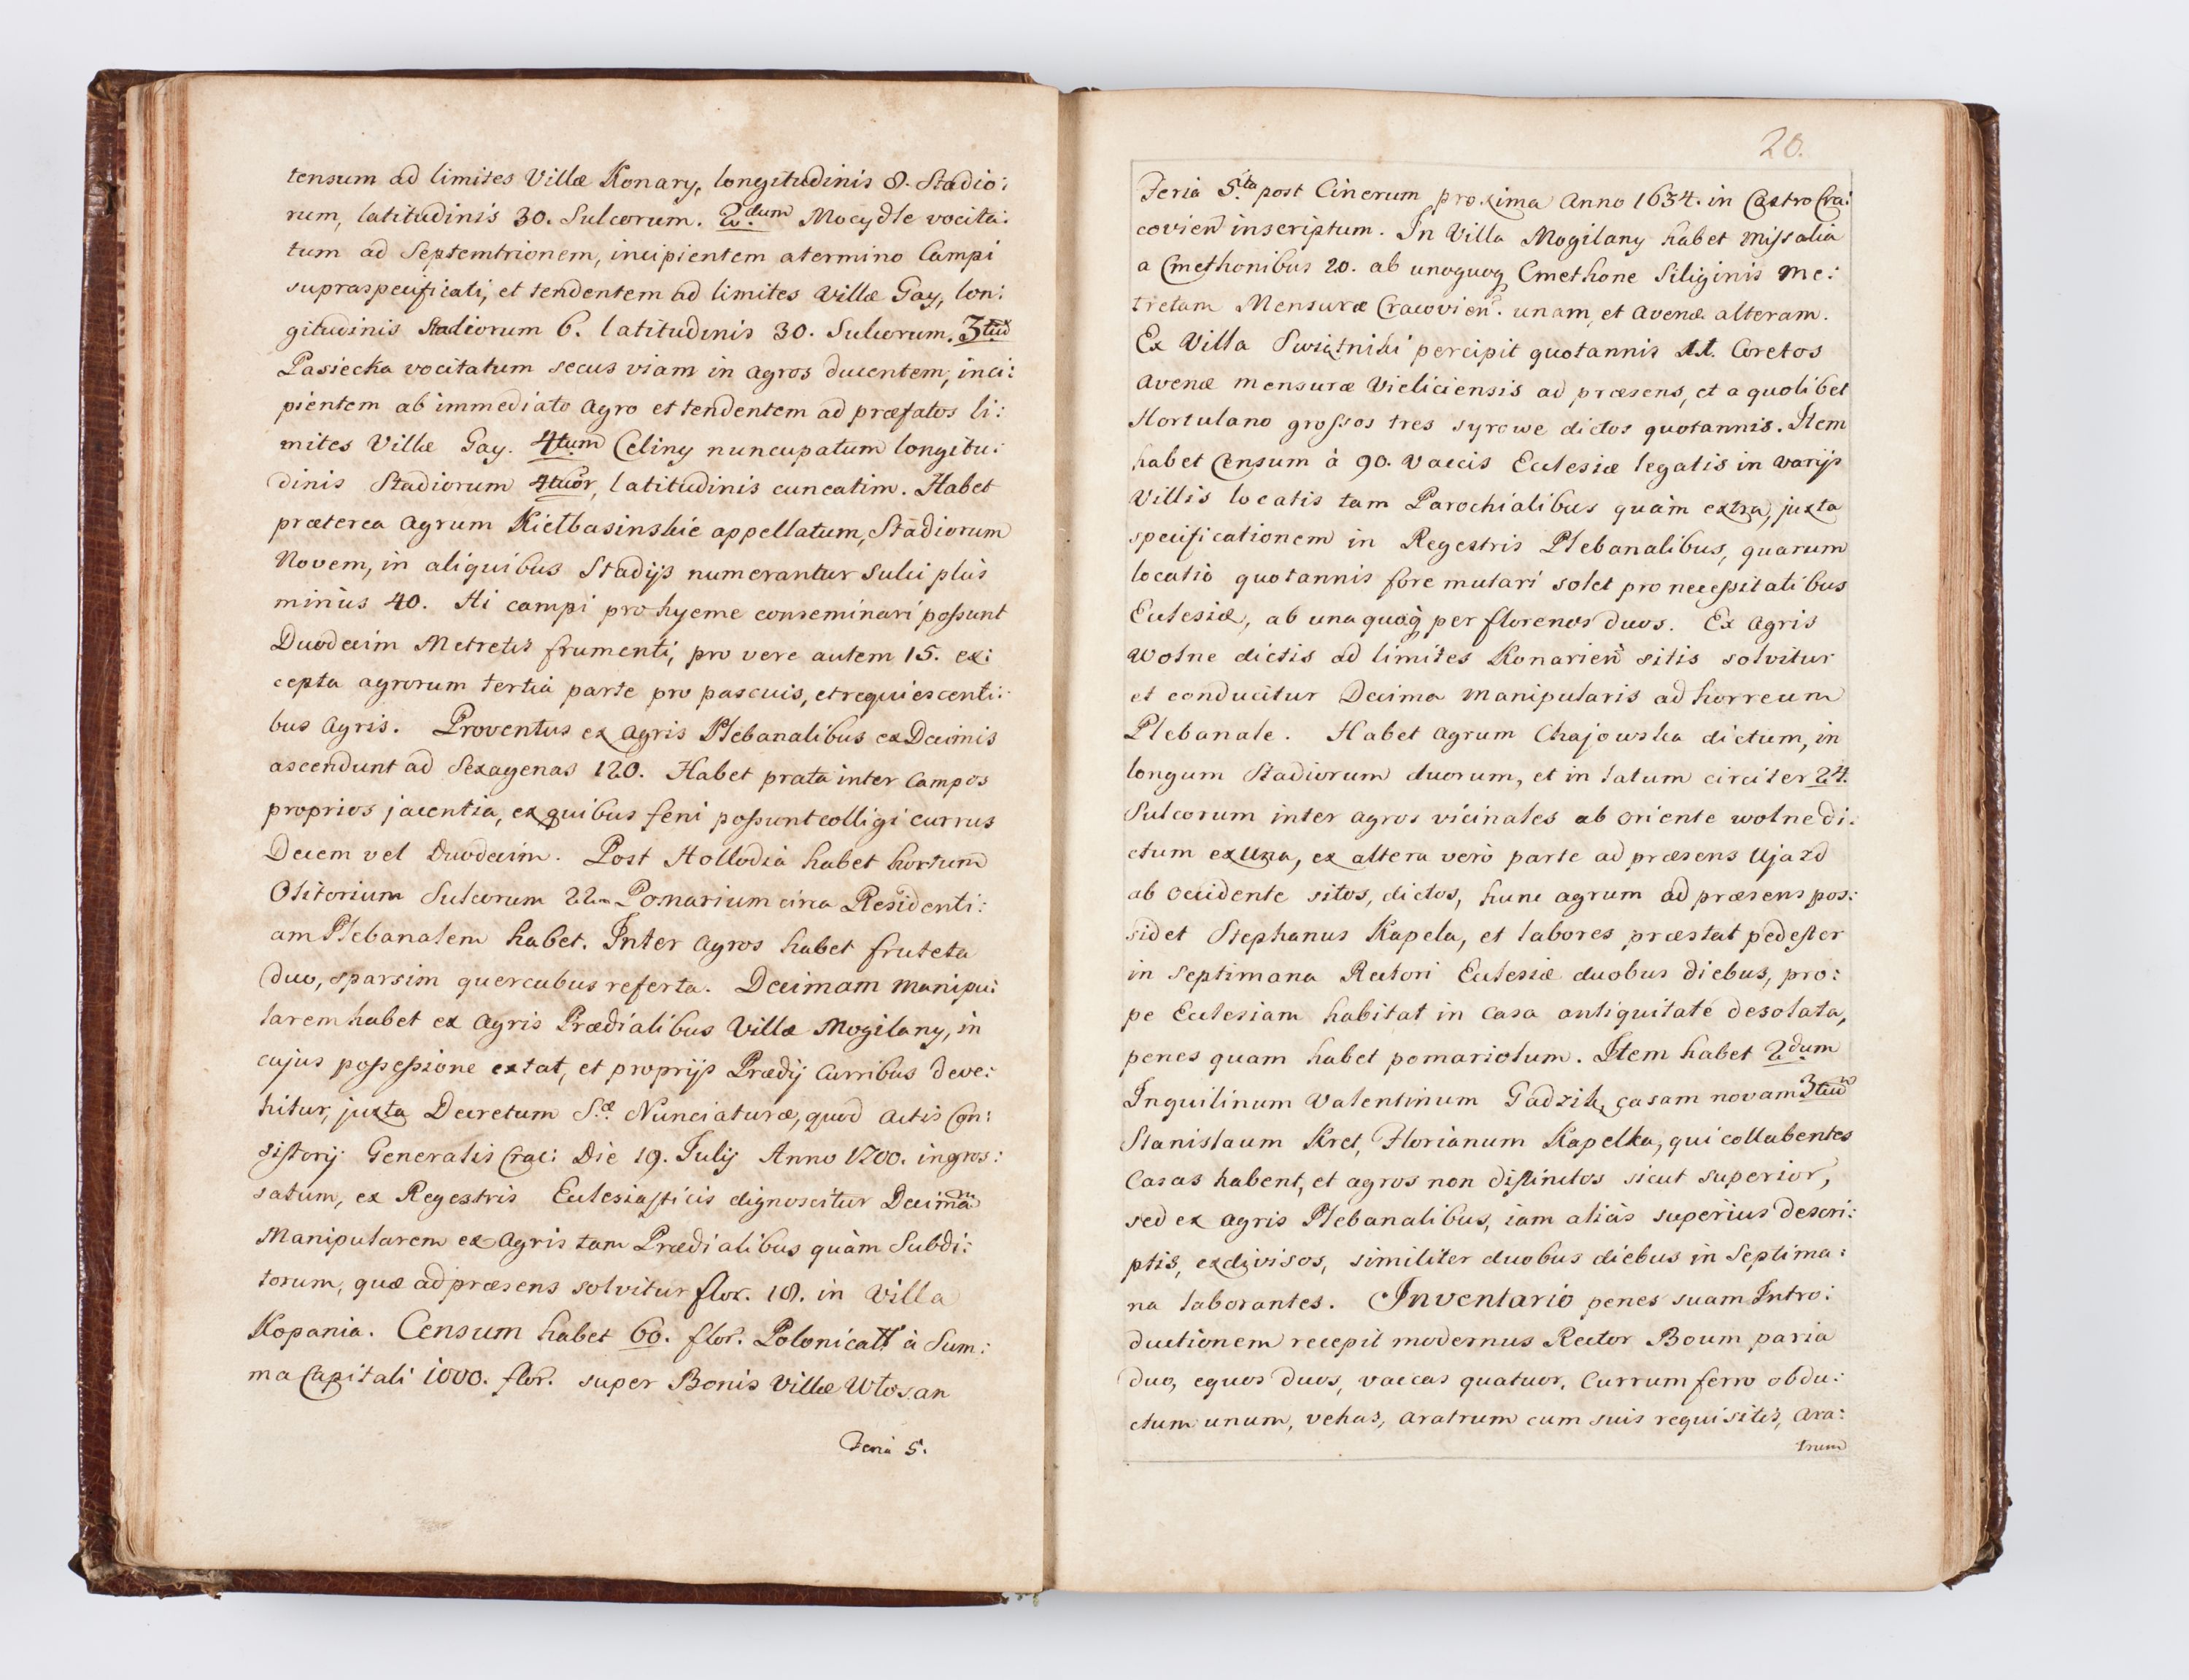 tensum ad limites Villæ Konary, longitudinis 8. Stadio:
rum, latitudinis 30. Sulcorum. 2dum Mocydle vocita:
tum ad Septemtrionem, incipientem a termino Campi
supraspecificati, et tendentem ad limites Villæ Gay, lon:
gitudinis Stadiorum 6. latitudinis 30. Sulcorum. 3tiũ
Pasiecka vocitatum secus viam in agros ducentem, inci:
pientem ab immediato agro et tendentem ad præfatos li:
mites Villæ Gay. 4tum Celiny nuncupatum longitu:
dinis Stadiorum 4tuor, latitudinis cuneatim. Habet
præterea agrum Kiełbasinskie appellatum, Stadiorum
Novem, in aliquibus Stadijs numerantur sulci plùs
minùs 40. Hi campi pro hyeme conseminari possunt
Duodecim Metretis frumenti, pro vere autem 15. ex:
cepta agrorum tertia parte pro pascuis, et requiescenti:
bus agris. Proventus ex agris Plebanalibus ex Decimis
ascendunt ad Sexagenas 120. Habet prata inter Campos
proprios jacentia, ex quibus feni possunt colligi currus
Decem vel Duodecim. Post Hollodia habet hortum
Olitorium Sulcorum 22. Pomarium circa Residenti:
am Plebanalem habet. Inter agros habet fruteta
duo, sparsim quercubus referta. Decimam manipu:
larem habet ex Agris Prædialibus Villæ Mogilany, in
cujus possessione extat, et proprijs Prædij Curribus deve:
hitur, juxta Decretum S.æ Nunciaturæ, quod Actis Con:
sistorij Generalis Crac: Die 19. Julij Anno 1700. ingros:
satum, ex Regestris Ecclesiasticis dignoscitur Decimam
Manipularem ex Agris tam Prædialibus quàm Subdi:
torum, quæ ad præsens solvitur flor. 18. in Villa
Kopania. Censum habet 60. flor. Polonicall à Sum:
ma Capitali 1000. flor. super Bonis Villæ Włosan
Feria 5.
20.
Feria 5ta post Cinerum proxima Anno 1634. in Castro Cra:
covien inscriptum. In Villa Mogilany habet Missalia
a Cmethonibus 20. ab unoquoq Cmethone Siliginis Me:
tretam Mensuræ Cracovien. unam, et Avenæ alteram.
Ex Villa Swiątniki percipit quotannis 11. Coretos
Avenæ mensuræ Vieliciensis ad præsens, et a quolibet
Hortulano grossos tres syrowe dictos quotannis. Item
habet Censum à 90. Vaccis Ecclesiæ legatis in varijs
Villis locatis tam Parochialibus quàm extra, juxta
specificationem in Regestris Plebanalibus, quarum
locatio quotannis fore mutari solet pro necessitatibus
Ecclesiæ, ab una quaq per florenos duos. Ex Agris
Wolne dictis ad limites Konarien sitis solvitur
et conducitur Decima manipularis ad horreum
Plebanale. Habet agrum Chajowska dictum, in
longum Stadiorum duorum, et in latum circiter 24.
Sulcorum inter agros vicinales ab oriente wolne di:
ctum ex una, ex altera verò parte ad præsens Ujazd
ab occidente sitos, dictos, hunc agrum ad præsens pos:
sidet Stephanus Kapela, et labores præstat pedester
in Septimana Rectori Ecclesiæ duobus diebus, pro:
pe Ecclesiam habitat in Casa antiquitate desolata,
penes quam habet pomariolum. Item habet 2dum
Inquilinum Valentinum Gadzik, casam novam 3tium
Stanislaum Kret, Florianum Kapelka, qui collabentes
Casas habent, et agros non distinctos sicut superior,
sed ex Agris Plebanalibus, iam aliàs superius descri:
ptis, exdivisos, similiter duobus diebus in Septima:
na laborantes. Inventario penes suam Intro:
ductionem recepit modernus Rector Boum paria
duo, equos duos, vaccas quatuor, Currum ferro obdu:
ctum unum, vehas, aratrum cum suis requisitis, ara:
trum